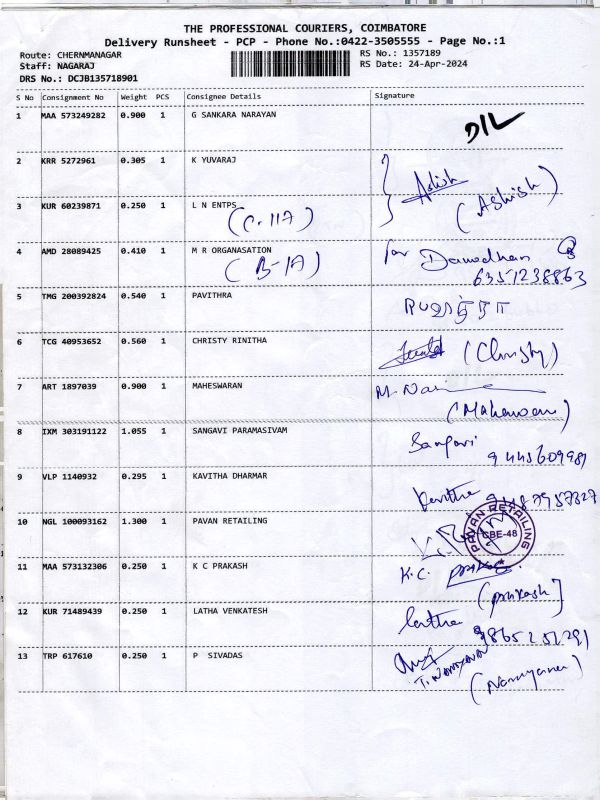 THE PROFESSIONAL COURIERS, COIMBATORE
Delivery Runsheet - PCP - Phone No.:0422-3505555 - Page No.:1
Route: CHERNMANAGAR RS No.: 1357189
Staff: NAGARAJ RS Date: 24-Apr-2024
DRS No.: DCJB135718901
S No Consignment No Weight PCS Consignee Details Signature
1 MAA 573249282 0.900 1 G SANKARA NARAYAN D/L
2 KRR 5272961 0.305 1 K YUVARAJ
Ashish
(Ashish)
3 KUR 60239871 0.250 1 L N ENTPS
(C-11A)
4 AMD 28089425 0.410 1 M R ORGANASATION for Damodharn
(B-1A) 6351238863
5 TMG 200392824 0.540 1 PAVITHRA
6 TCG 40953652 0.560 1 CHRISTY RINITHA
(Christy)
7 ART 1897039 0.900 1 MAHESWARAN
8 IXM 303191122 1.055 1 SANGAVI PARAMASIVAM
Sangavi
9445609981
9 VLP 1140932 0.295 1 KAVITHA DHARMAR
Kavitha
10 NGL 100093162 1.300 1 PAVAN RETAILING
PAVAN RETAILING
CBE-48
11 MAA 573132306 0.250 1 K C PRAKASH K.C. prakash
(prakash)
12 KUR 71489439 0.250 1 LATHA VENKATESH
Latha
13 TRP 617610 0.250 1 P SIVADAS
(Narayanan)